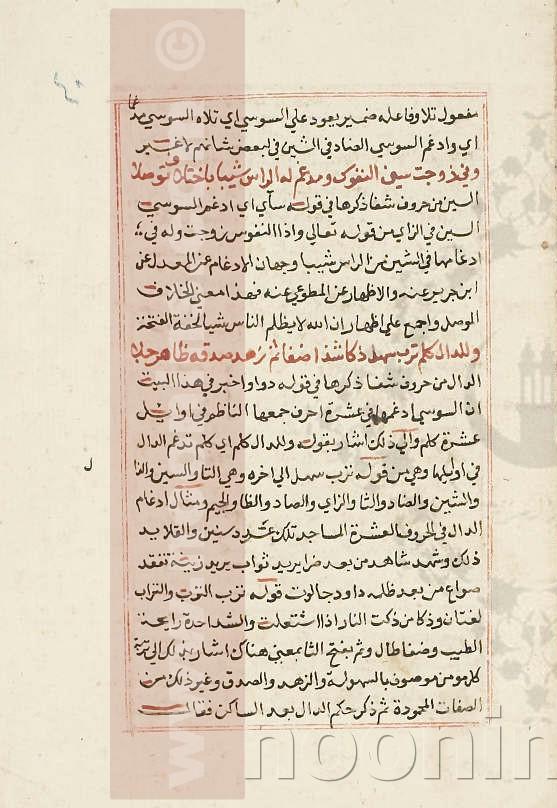 مفعول تلا وفاعله ضمير يعود علي السوسي اي تلاه السوسي مدغما
اي وادغم السوسي الضاد في الشين في لبعض شانهم لا غير
وفي زوجت سين النفوس ومدغم له الراس شيبا باختلاف توصلا
السين من حروف شفا ذكرها في قوله سآي اي ادغم السوسي
السين في الزاي من قوله تعالي واذا النفوس زوجت وله في
ادغامها في الشين من الراس شيبا وجهان الادغام عن المعدل عن
ابن جرير عنه والاظهار عن المطوعي عنه فهذا معني الخلاف
الموصل واجمع علي اظهار ان الله لا يظلم الناس شيا لخفة الفتحة
وللدال كلم ترب سهل ذكا شذا ضفا ثم زهد صدقه ظاهر جلا
الدال من حروف شفا ذكرها في قوله دوا واخبر في هذا البيت
ان السوسي ادغمها في عشرة احرف جمعها الناظم في اوايل
عشرة كلم والي ذلك اشار بقوله وللدال كلم اي كلم تدغم الدال
في اوايلها وهي من قوله ترب سهل الي اخره وهي التا والسين والذا
والشين والضاد والثا والزاي والصاد والظا والجيم ومثال ادغام
الدال في الحروف العشرة المساجد تلك عدد سنين والقلايد
ذلك وشهد شاهد من بعد ضرا يريد ثواب يريد زينة تفقد
صواع من بعد ظلمه داود جالوت قوله ترب الترب والتراب
لغتان وذكا من ذكت النار اذا اشتعلت والشذا حدة رايحة
الطيب وضفا طال وثم بفتح الثا بمعني هناك اشار بذلك الي تربة
كل مومن موصوف بالسهولة والزهد والصدق وغير ذلك من
الصفات المحمودة ثم ذكر حكم الدال بعد الساكن فقال
ل
©
www
noonin